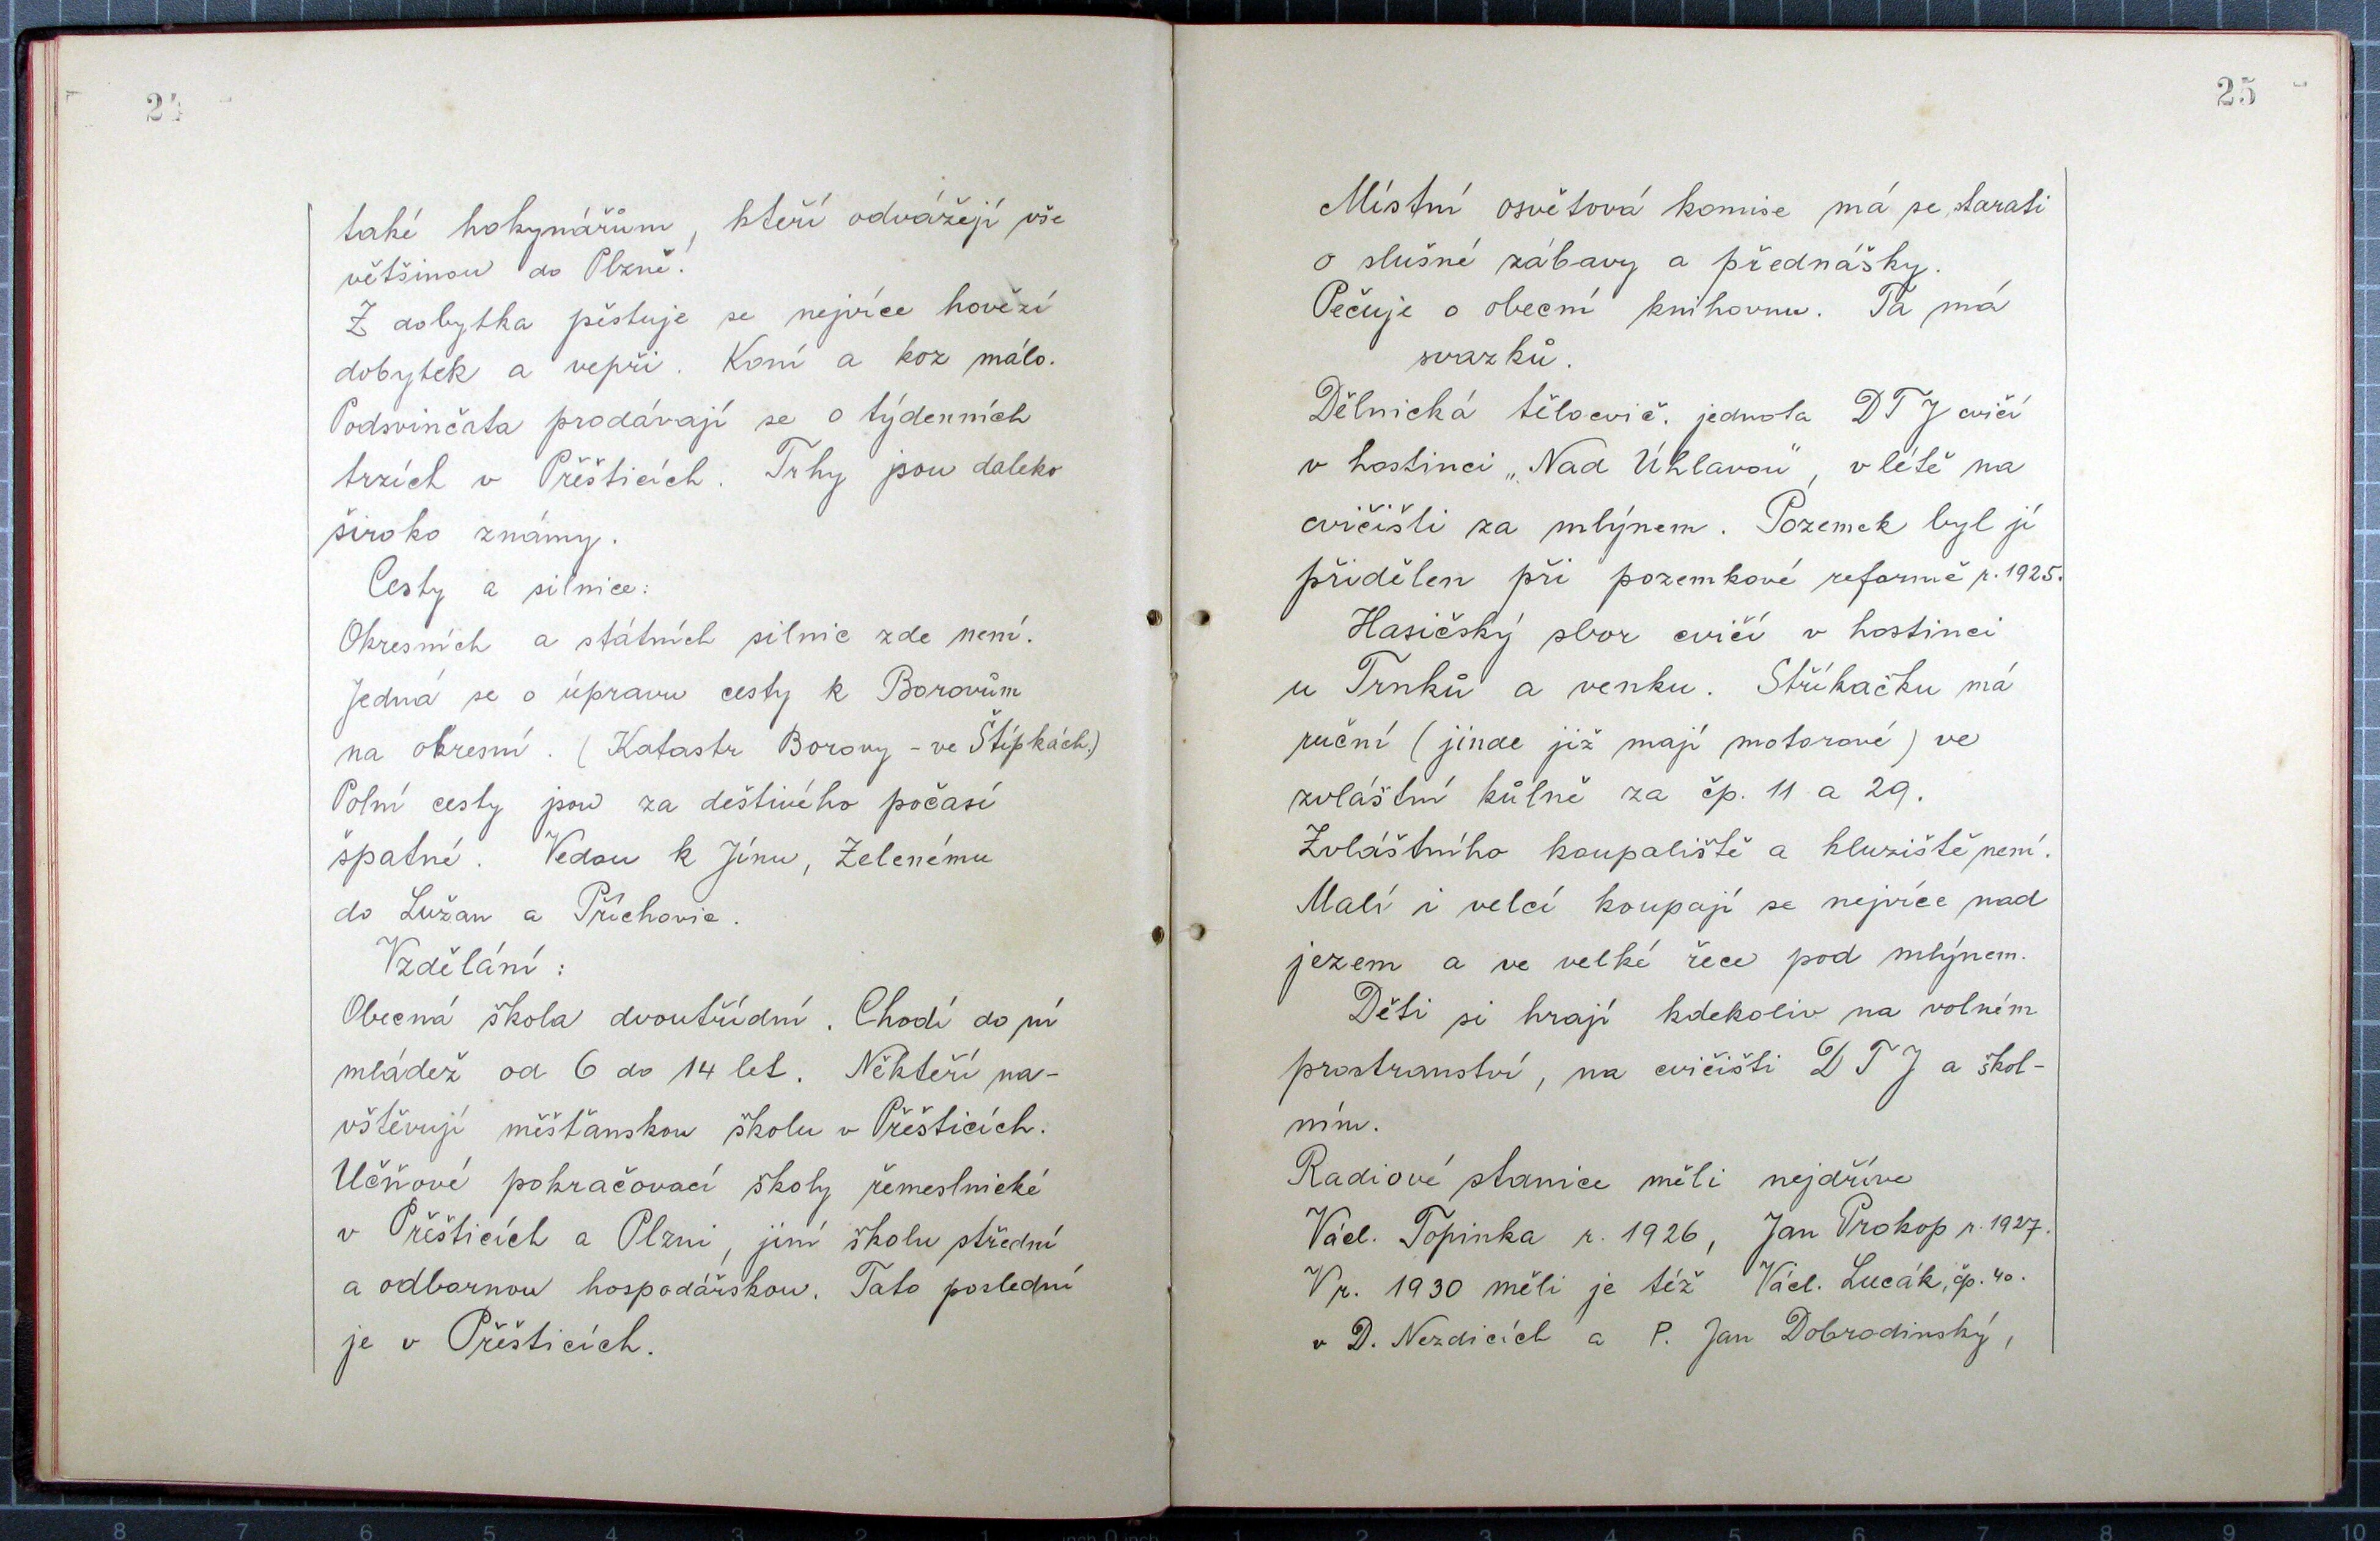 24
také hokynářům, kteří odvážejí vše
většinou do Plzně.
Z dobytka pěstuje se nejvíce hovězí
dobytek a vepři. Koní a koz málo.
Podsvinčata prodávají se o týdenních
trzích v Přešticích. Trhy jsou daleko
široko známy.
Cesty a silnice:
Okresních a státních silnic zde není.
Jedná se o úpravu cesty k Borovům
na okresní. (Katastr Borovy - ve Štípkách.)
Polní cesty jsou za deštivého počasí
špatné. Vedou k Jínu, Zelenému
do Lužan a Příchovic.
Vzdělání:
Obecná škola dvoutřídní. Chodí do ní
mládež od 6 do 14 let. Někteří na-
vštěvují měšťanskou školu v Přešticích.
Učňové pokračovací školy řemeslnické
v Přešticích a Plzni, jiní školu střední
a odbornou hospodářskou. Tato poslední
je v Přešticích.
25
Místní osvětová komise má se starati
o slušné zábavy a přednášky.
Pečuje o obecní knihovnu. Ta má
svazků.
Dělnická tělocvič. jednota DTJ cvičí
v hostinci „Nad Úhlavou", v létě na
cvičišti za mlýnem. Pozemek byl jí
přidělen při pozemkové reformě r. 1925.
Hasičský sbor cvičí v hostinci
u Trnků a venku. Stříkačku má
ruční (jinde již mají motorové) ve
zvláštní kůlně za čp. 11 a 29.
Zvláštního koupaliště a kluziště není.
Malí i velcí koupají se nejvíce nad
jezem a ve velké řece pod mlýnem.
Děti si hrají kdekoliv na volném
prostranství, na cvičišti DTJ a škol-
ním.
Radiové stanice měli nejdříve
Václ. Topinka r. 1926, Jan Prokop r. 1927.
V r. 1930 měli je též Václ. Lucák, čp. 40.
v D. Nezdicích a P. Jan Dobrodinský,